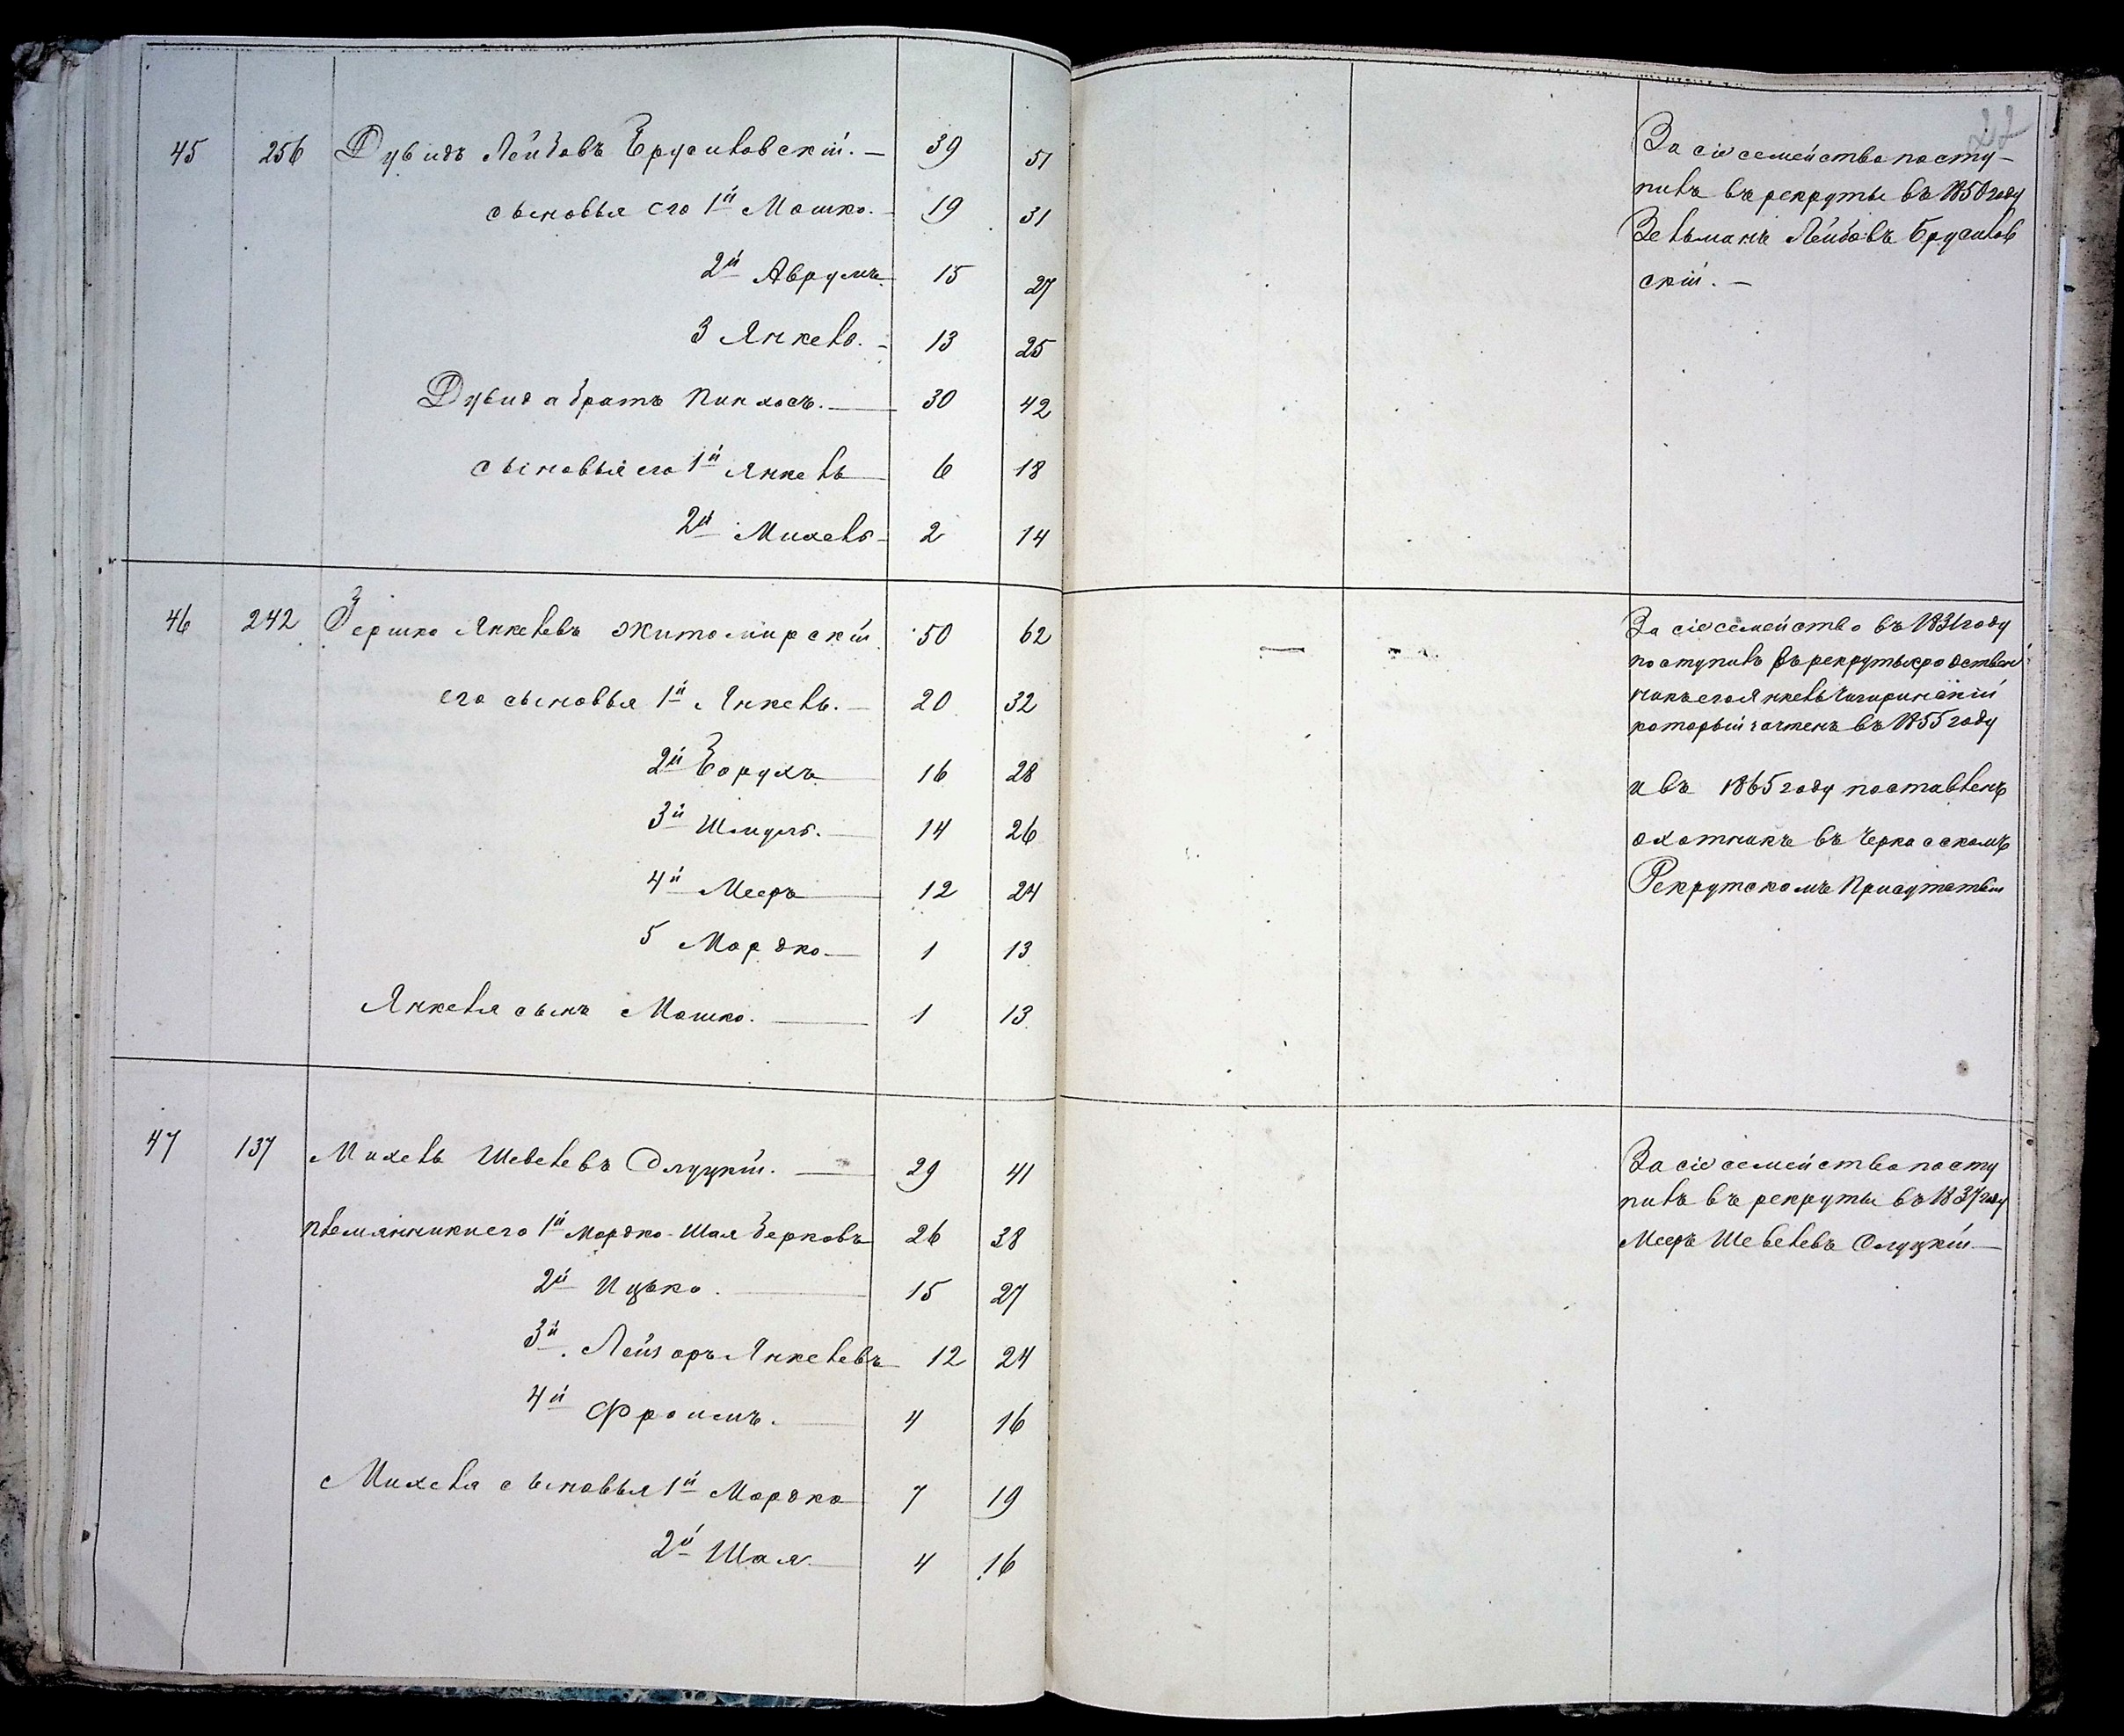 45 256 Дувидъ Лейбовъ Брусиловскій. — 39 51
сыновья его 1й Мошко. — 19 31
2й Аврумъ 15 27
3 Янкель. — 13 25
Дувида братъ Пинхосъ. — 30 42
сыновья его 1й Янкель — 6 18
2й Михель — 2 14
46 242 Гершко Янкелевъ Житомирскій 50 62
его сыновья 1й Янкель. — 20 32
2й Борухъ — 16 28
3й Шмуль. — 14 26
4й Мееръ — 12 24
5 Мордко — 1 13
Янкеля сынъ Мошко. — 1 13
47 137 Михель Шевелевъ Слуцкій. — 29 41
племянники его 1й Мордко-Шая Берковъ 26 38
2й Ицько. — 15 27
3й Лейзоръ Янкелевъ 12 24
4й Фроимъ. — 4 16
Михеля сыновья 1й Мордко 7 19
2й Шая — 4 16
За сіе семейство посту-
пилъ въ рекруты въ 1850 году
Зельманъ Лейбовъ Брусилов
скій. —
За сіе семейство въ 1831 году
поступилъ въ рекруты родствен
никъ его Янкель Чигиринскій
который зачтенъ въ 1855 году
и въ 1865 году поставленъ
охотникъ въ Черкасскомъ
Рекрутскомъ Присутствіи
За сіе семейство посту
пилъ въ рекруты въ 1837 году
Мееръ Шевелевъ Слуцкій —